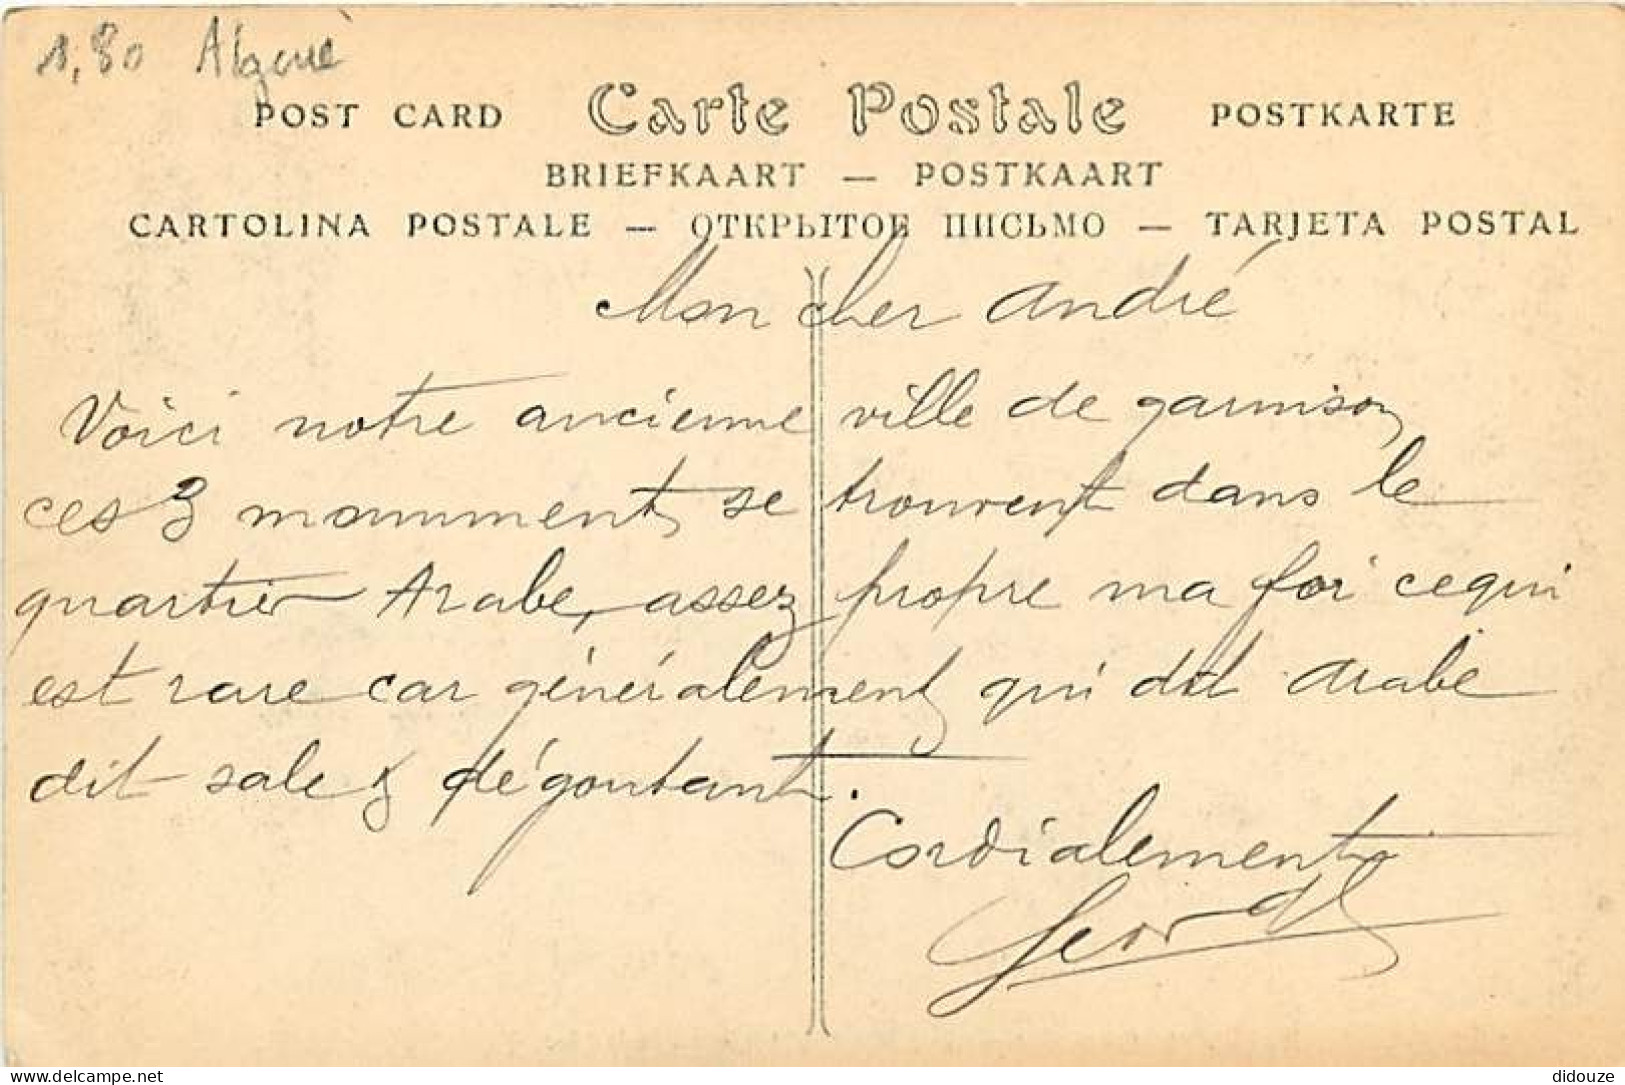 1,80 Algerie
POST CARD Carte Postale POSTKARTE
BRIEFKAART — POSTKAART
CARTOLINA POSTALE — ОТКРЫТОЕ ПИСЬМО — TARJETA POSTAL
Mon cher André
Voici notre ancienne ville de garnison
ces 3 monuments se trouvent dans le
quartier Arabe, assez propre ma foi cequi
est rare car généralement qui dit arabe
dit sale & dégoutant.
Cordialement
delcampe.net
didouze